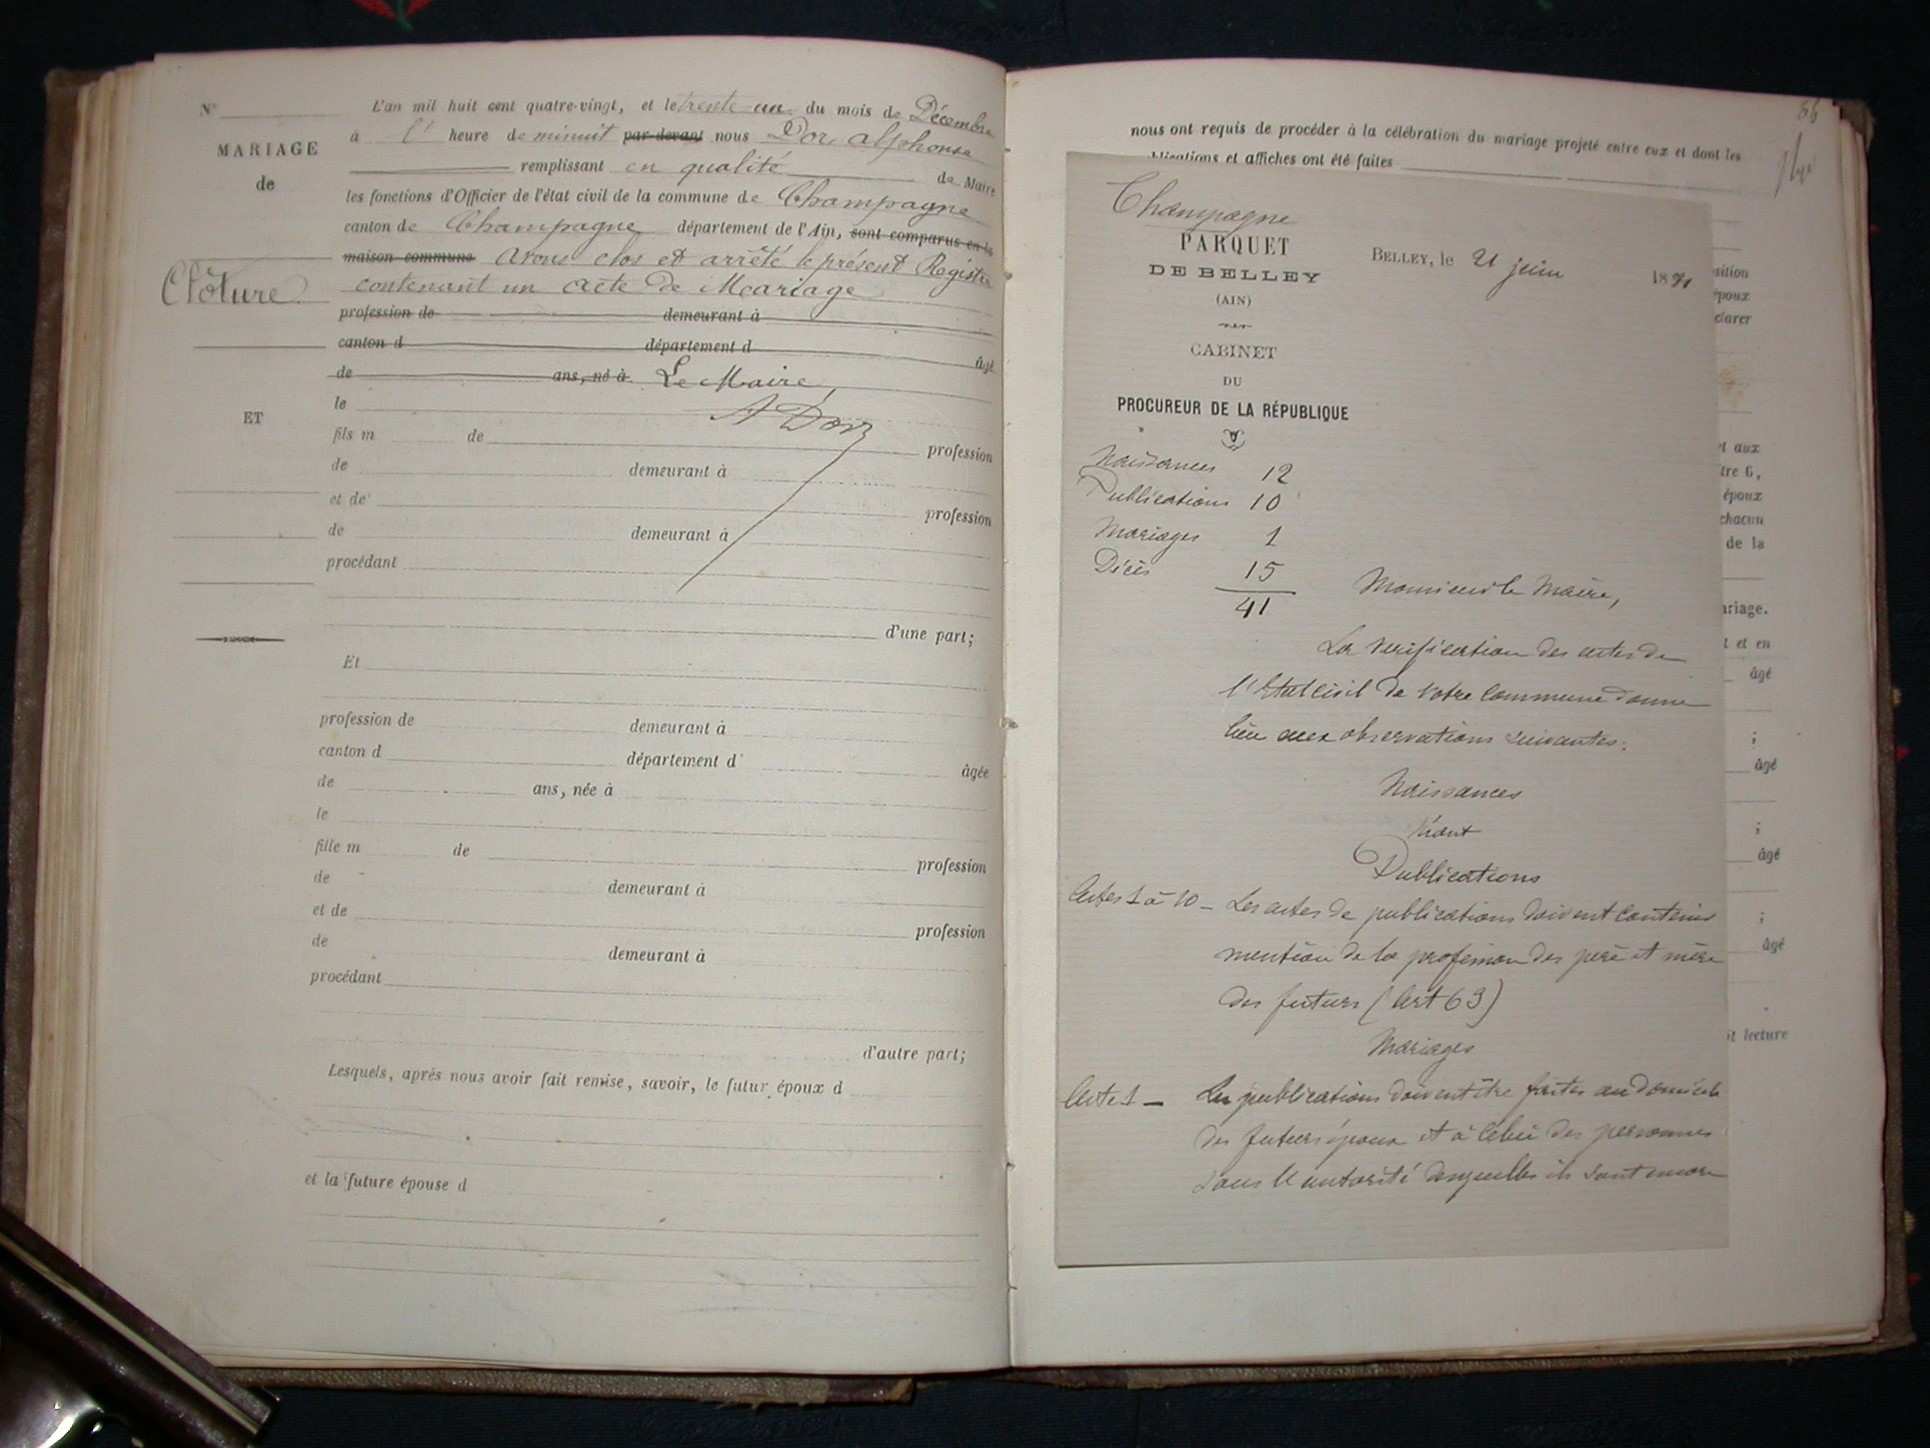 N°
MARIAGE
de
Clôture
ET
L'an mil huit cent quatre-vingt, et le trente un du mois de Décembre
à l' heure de minuit par-devant nous Dor alphonse
remplissant en qualité de Maire
les fonctions d'Officier de l'état civil de la commune de Champagne
canton de Champagne département de l'Ain, sont comparus en la
maison commune avons clos et arrêté le présent Registre
contenant un acte de Mariage
profession de demeurant à
canton d département d âgé
de ans, né à Le Maire
le A Dor
fils m de profession
de demeurant à
et de profession
de demeurant à
procédant
d'une part;
Et
profession de demeurant à
canton d département d âgée
de ans, née à
le
fille m de profession
de demeurant à
et de profession
de demeurant à
procédant
d'autre part;
Lesquels, après nous avoir fait remise, savoir, le futur époux d
et la future épouse d
nous ont requis de procéder à la célébration du mariage projeté entre eux et dont les
blications et affiches ont été faites
Champagne
PARQUET
DE BELLEY
(AIN)
CABINET
DU
PROCUREUR DE LA RÉPUBLIQUE
BELLEY, le 21 juin 18
Naissances 12
Publications 10
Mariages 1
Décès 15
41
Monsieur le Maire,
La vérification des actes de
l'Etat civil de votre commune donne
lieu aux observations suivantes:
Naissances
Néant
Publications
Actes 1 à 10 - Les actes de publications doivent contenir
mention de la profession des père et mère
des futurs (Art 63)
Mariages
Acte 1 - Les publications doivent être faites au domicile
des futurs époux et à celui des personnes
sous l'autorité desquelles ils sont encore
sition
époux
clarer
et aux
tre 6,
époux
chacun
de la
ariage.
t et en
âgé
;
âgé
;
âgé
;
âgé
it lecture